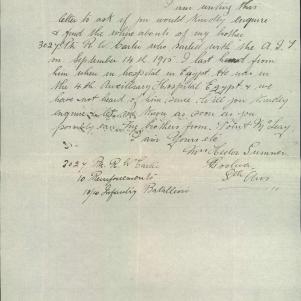 I am writing this
letter to ask if you would kindly enquire
& find the where abouts of my brother
3027 Pte R. W. Carlie who sailed with the A. I. F
in September 14th 1915 I last heard from
him when in hospital in Egypt He was in
the 4th Auxiliary Hospital Egypt & we
have not heard of him since. Will you kindly
enquire &
know as soon as you
possibly can. Two brothers from
I am Yours etc
Mrs Hector Sumner
3027 Pte R W Carlie
10 Reinforcements
10th Infantry Battalion